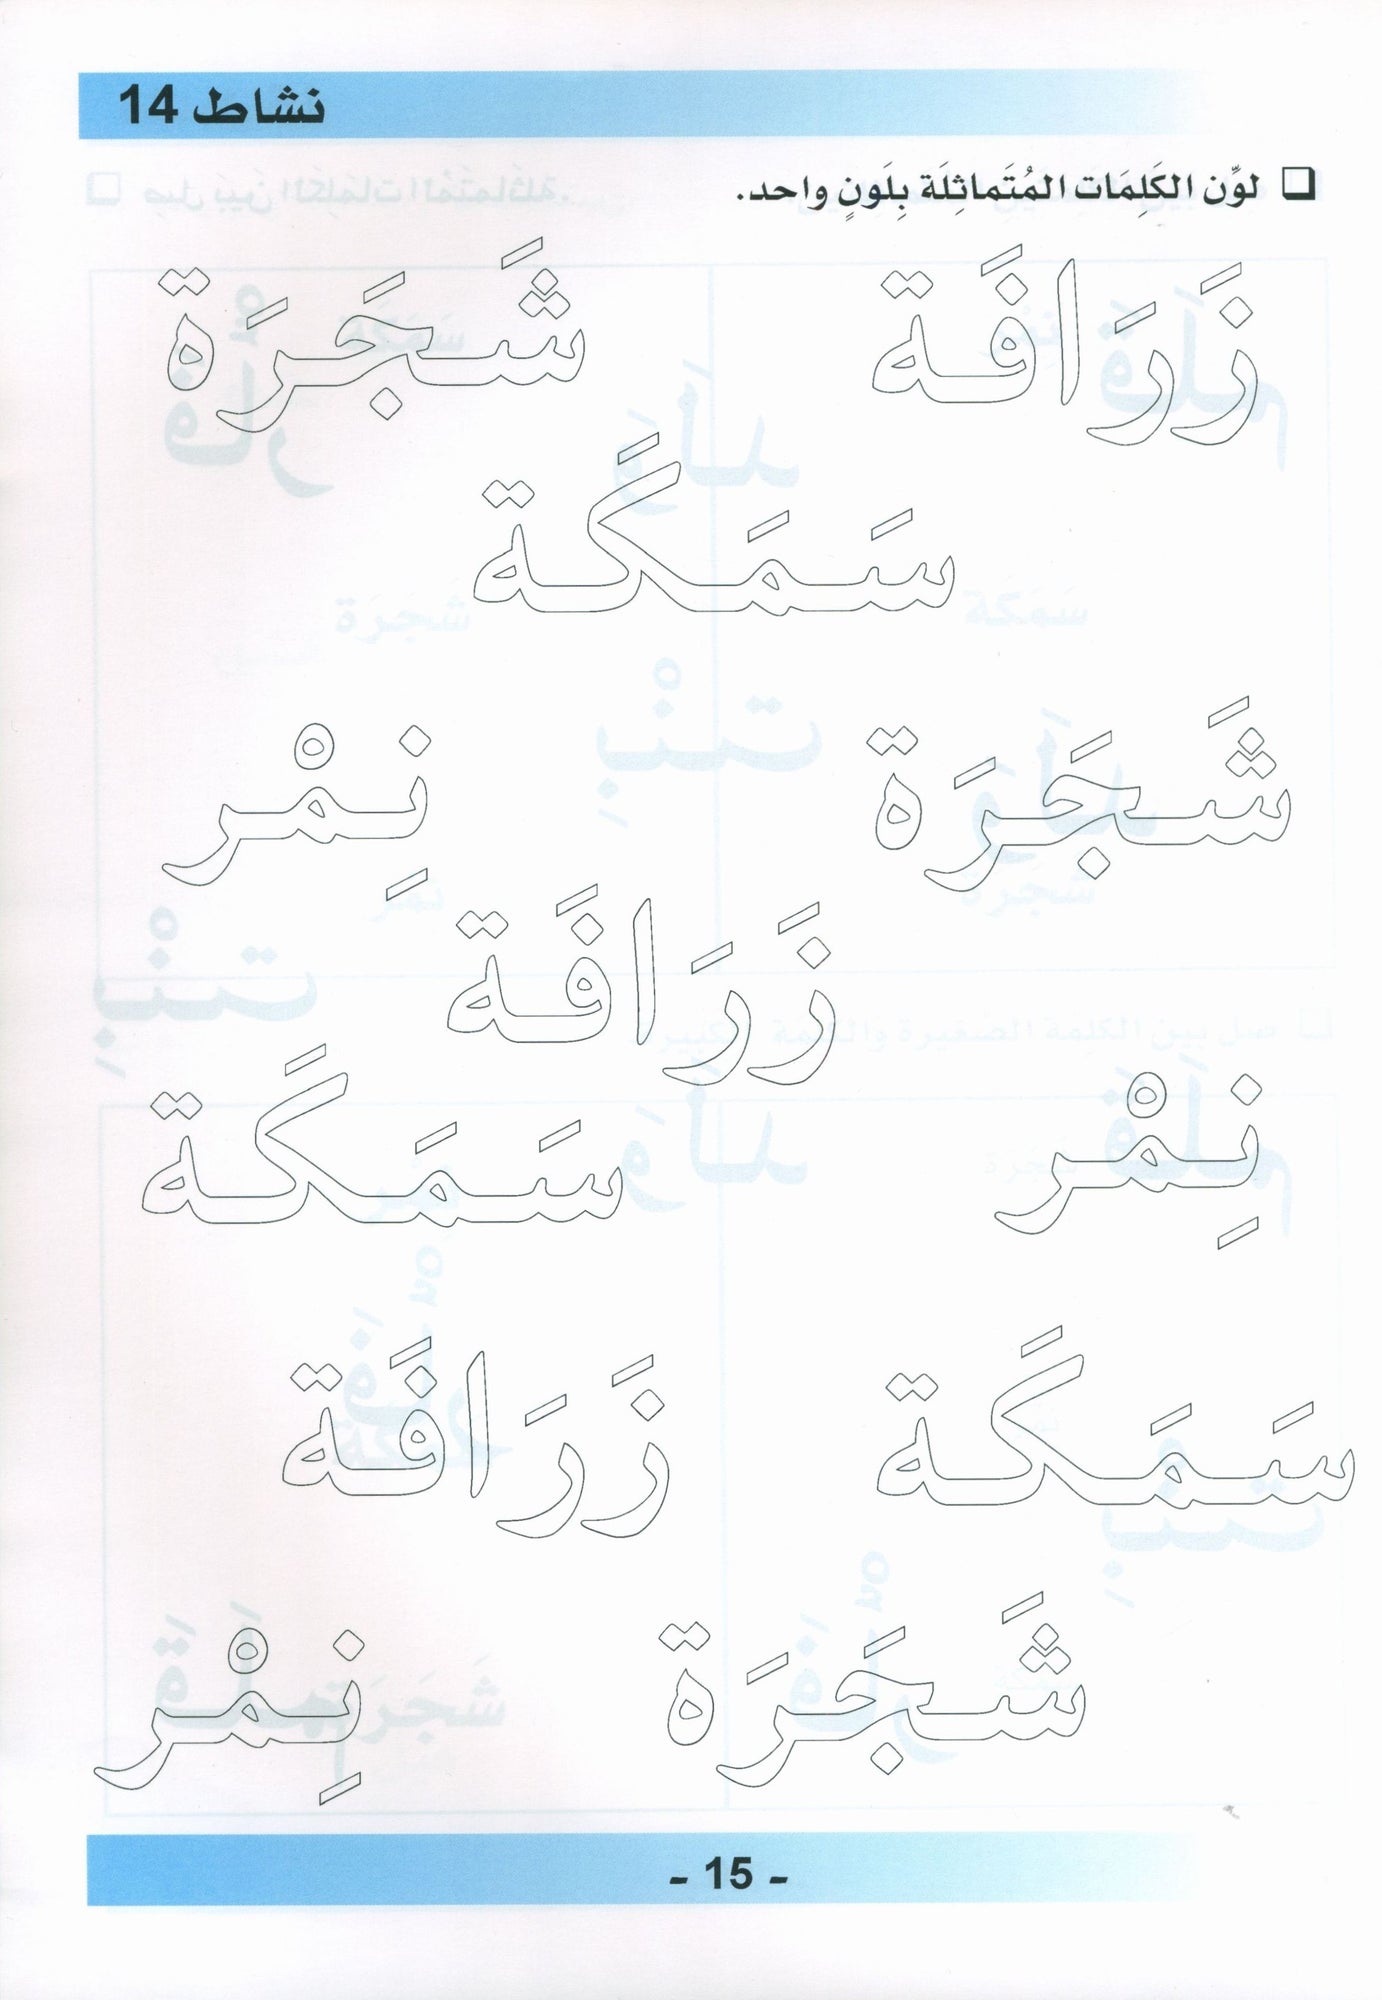 نشاط 14
❑ لوِّن الكَلِمَات المُتَماثِلَة بِلَونٍ واحد.
زَرَافَة شَجَرَة
سَمَكَة
شَجَرَة نِمْر
زَرَافَة
نِمْر سَمَكَة
سَمَكَة زَرَافَة
شَجَرَة نِمْر
- 15 -